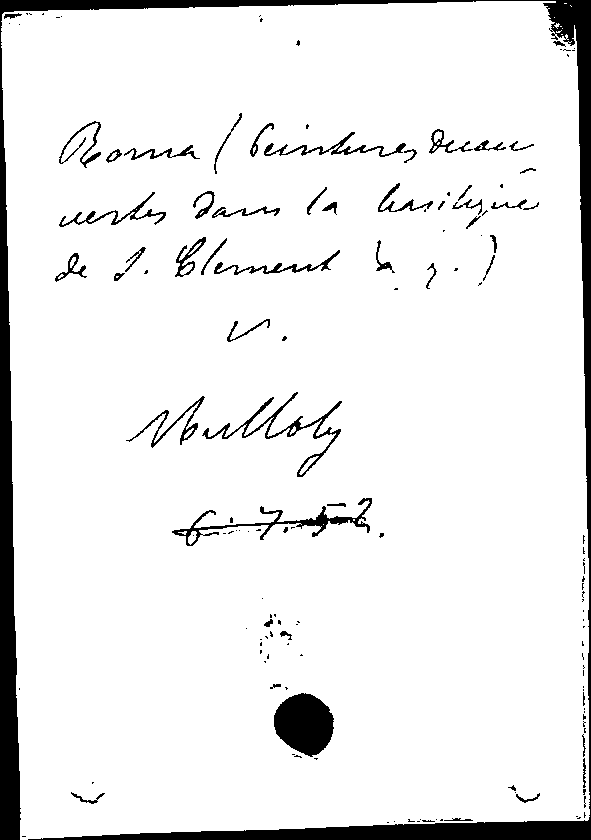 Roma (Peintures decou
vertes dans la basilique
de S. Clement à R.)
V.
Mullooly
6. 7. 52.